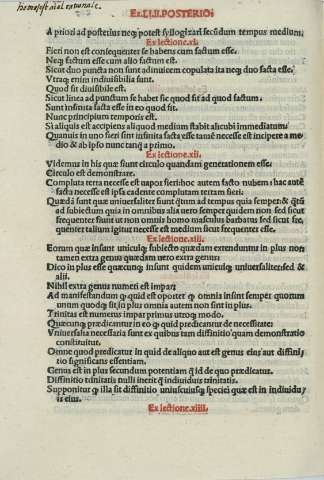 homo est aīal rationale
Ex.LI.II.POSTERIO⁊
A priori ad posterius neq; potest syllogizari secūdum tempus medium.
Ex lectione.xi.
Fieri non est consequenter se habens cum factum esse.
Neq; factum esse cum allo factum est.
Sicut duo puncta non sunt adinuicem copulata ita neq; duo facta esse.
Vtraq; enim indiuisibilia sunt.
Quod fit diuisibile est.
Sicut linea ad punctum se habet sic quod fit ad quod factum.
Sunt infinita facta esse in eo quod fit.
Nunc principium temporis est.
Si aliquis est accipiens aliquod medium stabit alicubi immediatum
Quamuis in uno fieri sint infinita facta esse tamē necesse est incipere a medio & ab ipso nunc tanq̄ a primo.
Ex lectione.xii.
Videmus in his quæ sunt circulo quandam generationem esse.
Circulo est demonstrare.
Compluta terra necesse est uapor fieri hoc autem facto nubem : hac autē
facta necesse est ipsa cadente complutam terram fieri.
Quædā sunt quæ uniuersaliter sunt q̄tum ad tempus quia semper & q̄tū
ad subiectum quia in omnibus alia uero semper quidem non sed sicut
frequenter sicut ut non omnis homo masculus barbatus sed sicut frequenter
talium igitur necesse est medium sicut frequenter esse.
Ex lectione.xiii.
Eorum quæ insunt unicuiq; subiecto quædam extenduntur in plus non
tamen extra genus quædam uero extra genus:
Dico in plus esse quæcunq; insunt quidem unicuiq; uniuersaliter sed &
alii.
Nihil extra genus numeri est impar:
Ad manifestandum q̄ quid est oportet q̄ omnis insint semper quorum
unum quodq; sit in plus omnia autem non sint in plus.
Trinitas est numerus impar primus utroq; modo.
Quæcunq; prædicantur in eo q̄ quid prædicantur de necessitate:
Vniuersalia necessaria sunt ex quibus tam diffinitio quam demonstratio
constituitur.
Omne quod predicatur in quid de aliquo aut est genus eius aut diffinitio
significans essentiam.
Genus est in plus secundum potentiam q̄ id de quo prædicatur.
Diffinitio trinitatis nulli inerit q̄ indiuiduis trinitatis.
Supponitur q̄ illa sit diffinitio uniuscuiusq; speciei quæ est in indiuiduis
eius.
Ex lectione.xiiii.